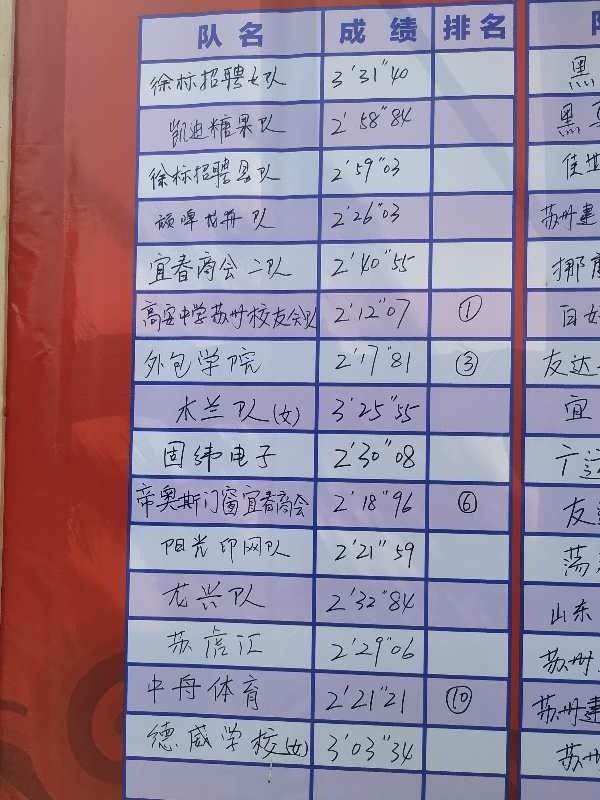 队名 成绩 排名
徐标招聘女队 3'31"40
凯迪糖果队 2'58"84
徐标招聘男队 2'59"03
颀啤龙舟队 2'26"03
宜春商会二队 2'40"55
高安中学苏州校友会队 2'12"07 ①
外包学院 2'17"81 ③
木兰队(女) 3'25"55
固纬电子 2'30"08
帝奥斯门窗宜春商会 2'18"96 ⑥
阳光印网队 2'21"59
龙兴队 2'32"84
苏虎江 2'29"06
中舟体育 2'21"21 ⑩
德威学校(女) 3'03"34
黑
黑马
佳世
苏州建
挪
百好
友达
宜
广
友
荡
山东
苏州
苏州建
苏州